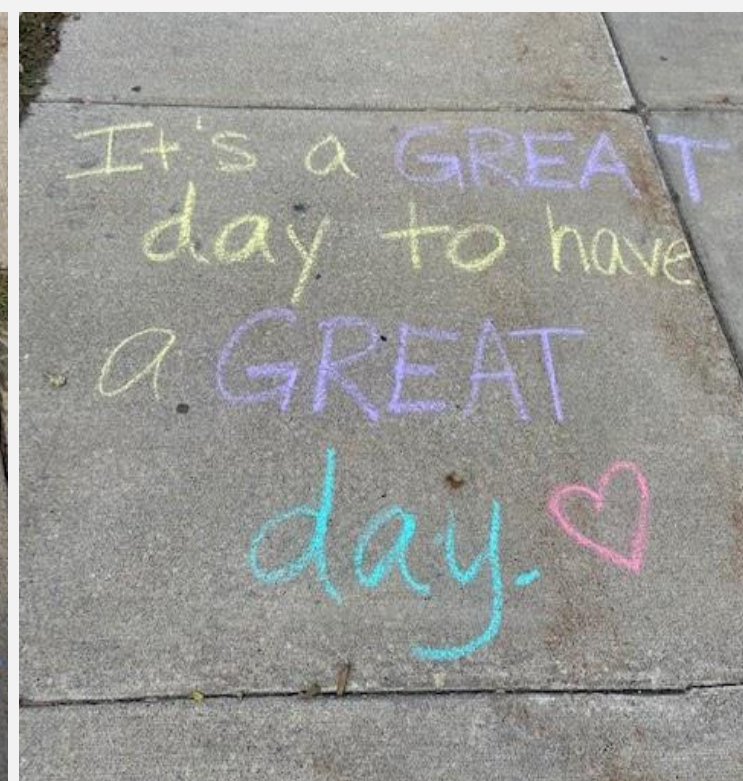 It's a GREAT
day to have
a GREAT
day.